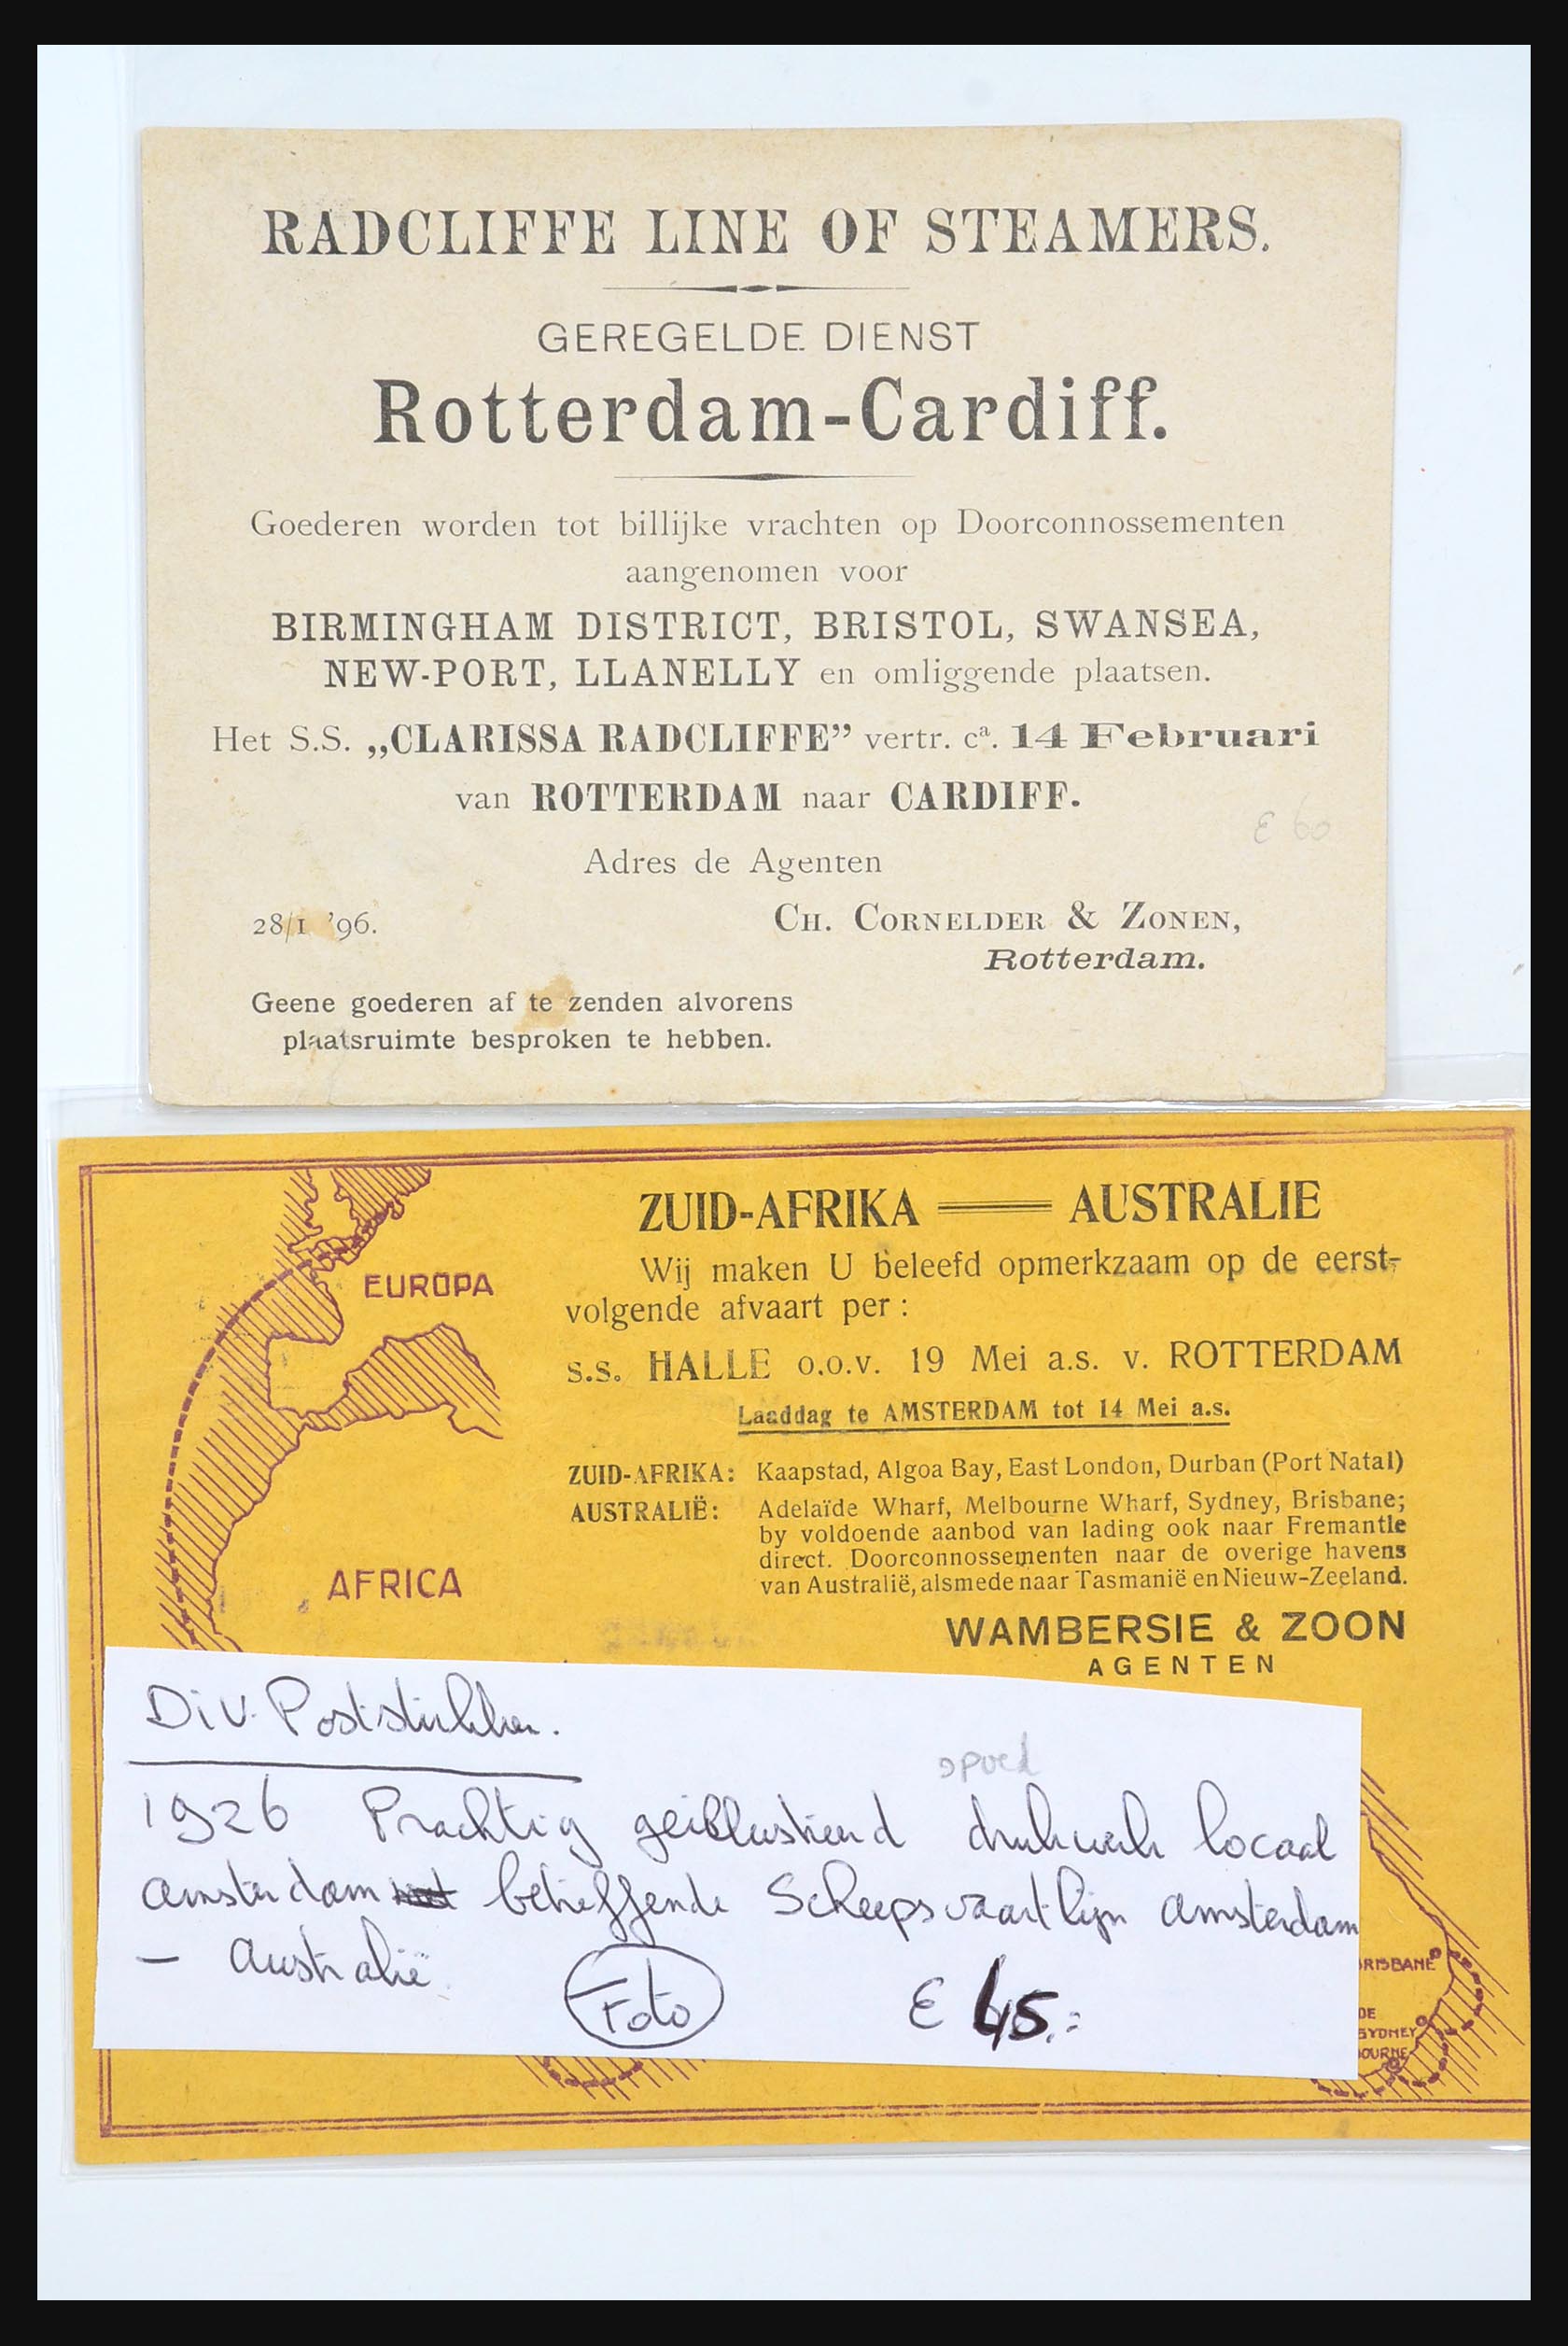 RADCLIFFE LINE OF STEAMERS.
GEREGELDE DIENST
Rotterdam-Cardiff.
Goederen worden tot billijke vrachten op Doorconnossementen
aangenomen voor
BIRMINGHAM DISTRICT, BRISTOL, SWANSEA,
NEW-PORT, LLANELLY en omliggende plaatsen.
Het S.S. „CLARISSA RADCLIFFE” vertr. cª. 14 Februari
van ROTTERDAM naar CARDIFF.
€ 60
Adres de Agenten
28/1 '96.
CH. CORNELDER & ZONEN,
Rotterdam.
Geene goederen af te zenden alvorens
plaatsruimte besproken te hebben.
EUROPA
AFRICA
ZUID-AFRIKA AUSTRALIE
Wij maken U beleefd opmerkzaam op de eerst-
volgende afvaart per :
s.s. HALLE o.o.v. 19 Mei a.s. v. ROTTERDAM
Laaddag te AMSTERDAM tot 14 Mei a.s.
ZUID-AFRIKA: Kaapstad, Algoa Bay, East London, Durban (Port Natal)
AUSTRALIË: Adelaïde Wharf, Melbourne Wharf, Sydney, Brisbane;
by voldoende aanbod van lading ook naar Fremantle
direct. Doorconnossementen naar de overige havens
van Australië, alsmede naar Tasmanië en Nieuw-Zeeland.
WAMBERSIE & ZOON
AGENTEN
Div. Poststukken.
spoed
1926 Prachtig geillustreerd drukwerk locaal
amsterdam betreffende Scheepsvaartlijn amsterdam
– Australië
Foto € 45.=
RISBANE
DE
SYDNEY
OURNE